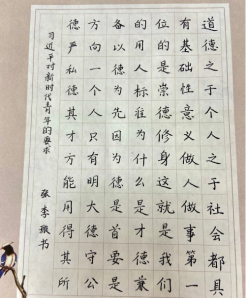 道德之于个人之于社会都具
有基础性意义做人做事第一
位的是崇德修身这就是我们
的用人标准为什么是德才兼
备以德为先因为德是首要是
方向一个人只有明大德守公
德严私德其才方能用得其所
习近平对新时代青年的要求
张李琼书